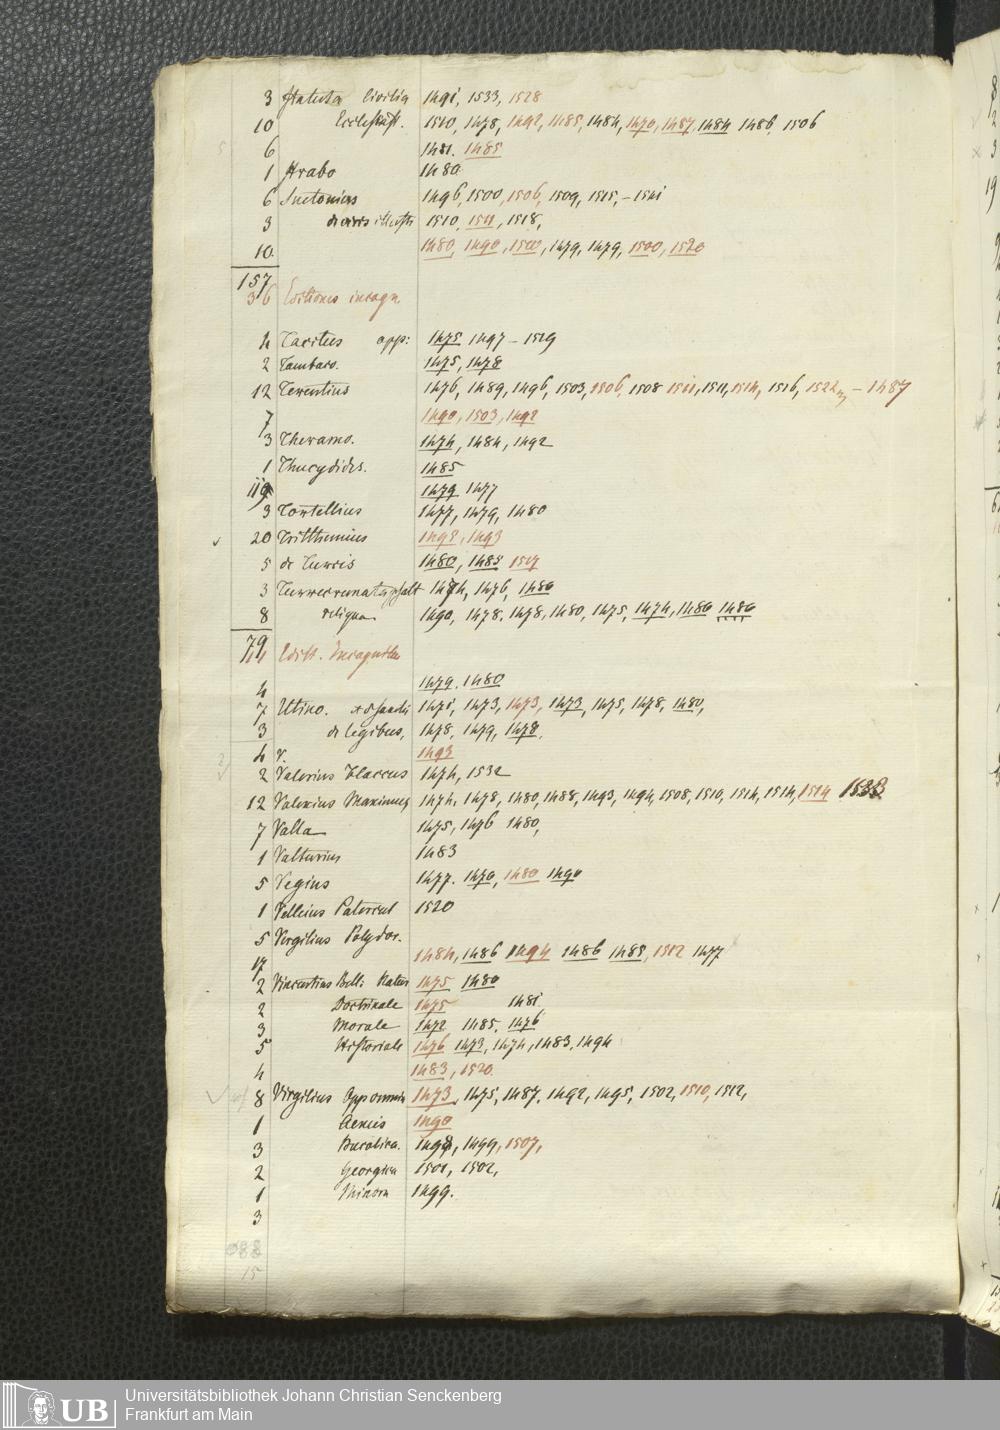 3 Statuta Civilia 1491, 1533, 1528
10 Ecclesiast. 1510, 1478, 1492, 1485, 1484, 1470, 1487, 1484 1486, 1506
6 1481. 1485
1 Strabo 1480
6 Suetonius 1496, 1500, 1506, 1509, 1515, - 1521
3 de viris illustr 1510, 1511, 1518,
10. 1480, 1490, 1500, 1479, 1479, 1500, 1520
157
36 Editiones incogn
4 Tacitus opp: 1475 1497 - 1519
2 Tambaco. 1475, 1478
12 Terentius 1476, 1489, 1496, 1503, 1506, 1508 1511, 1511, 1514, 1516, 1522, - 1487
7 1490, 1503, 1492
3 Theramo. 1474, 1484, 1492
1 Thucydides. 1485
1479 1477
3 Tortellius 1477, 1479, 1480
20 Tritthemius 1492, 1493
5 de Turcis 1480, 1485 1517
3 Turrecremata psalt 1474, 1476, 1480
8 reliqua 1490, 1478, 1478, 1480, 1475, 1474, 1480 1480
79
44 Edit. Incognitae
4 1479. 1480
7 Utino. de sanctis 1471, 1473, 1473, 1473, 1475, 1478, 1480,
3 de legibus, 1478, 1479, 1478,
4 V. 1493
2 Valerius Flaccus 1474, 1532
12 Valerius Maximus 1474, 1478, 1480, 1488, 1493, 1494, 1508, 1510, 1514, 1514, 1514 1533
7 Valla 1475, 1476 1480,
1 Valturius 1483
5 Vegius 1477. 1470, 1480 1490
1 Velleius Patercul 1520
5 Vergilius Polydor.
17 1484, 1486 1494 1486 1485, 1512 1477
2 Vincentius Bell: Natur 1475 1480
2 Doctrinale 1475 1481
3 Morale 1472 1485, 1476
5 Historiale 1476 1473, 1474, 1483, 1494
4 1483, 1520.
8 Virgilius Opp omnia 1473, 1475, 1487, 1492, 1495, 1502, 1510, 1512,
1 Aeneis 1490
3 Bucolica. 1498, 1499, 1507,
2 Georgica 1501, 1502,
1 Minora 1499.
3
88
15
UB
Universitätsbibliothek Johann Christian Senckenberg
Frankfurt am Main